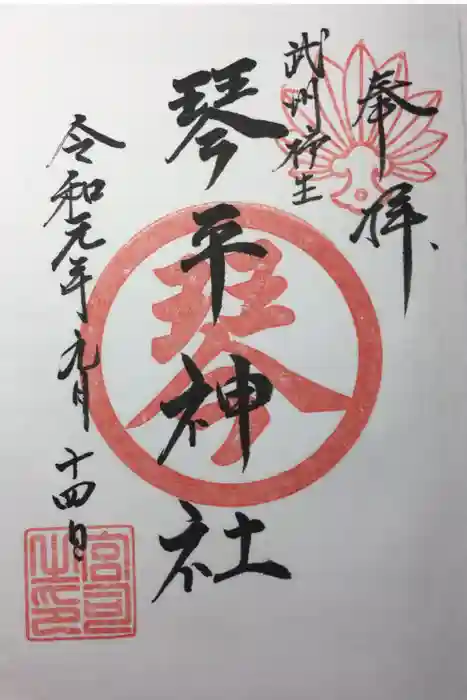 奉拝
武州柿生
琴平神社
琴
令和元年九月十四日
宮司之印